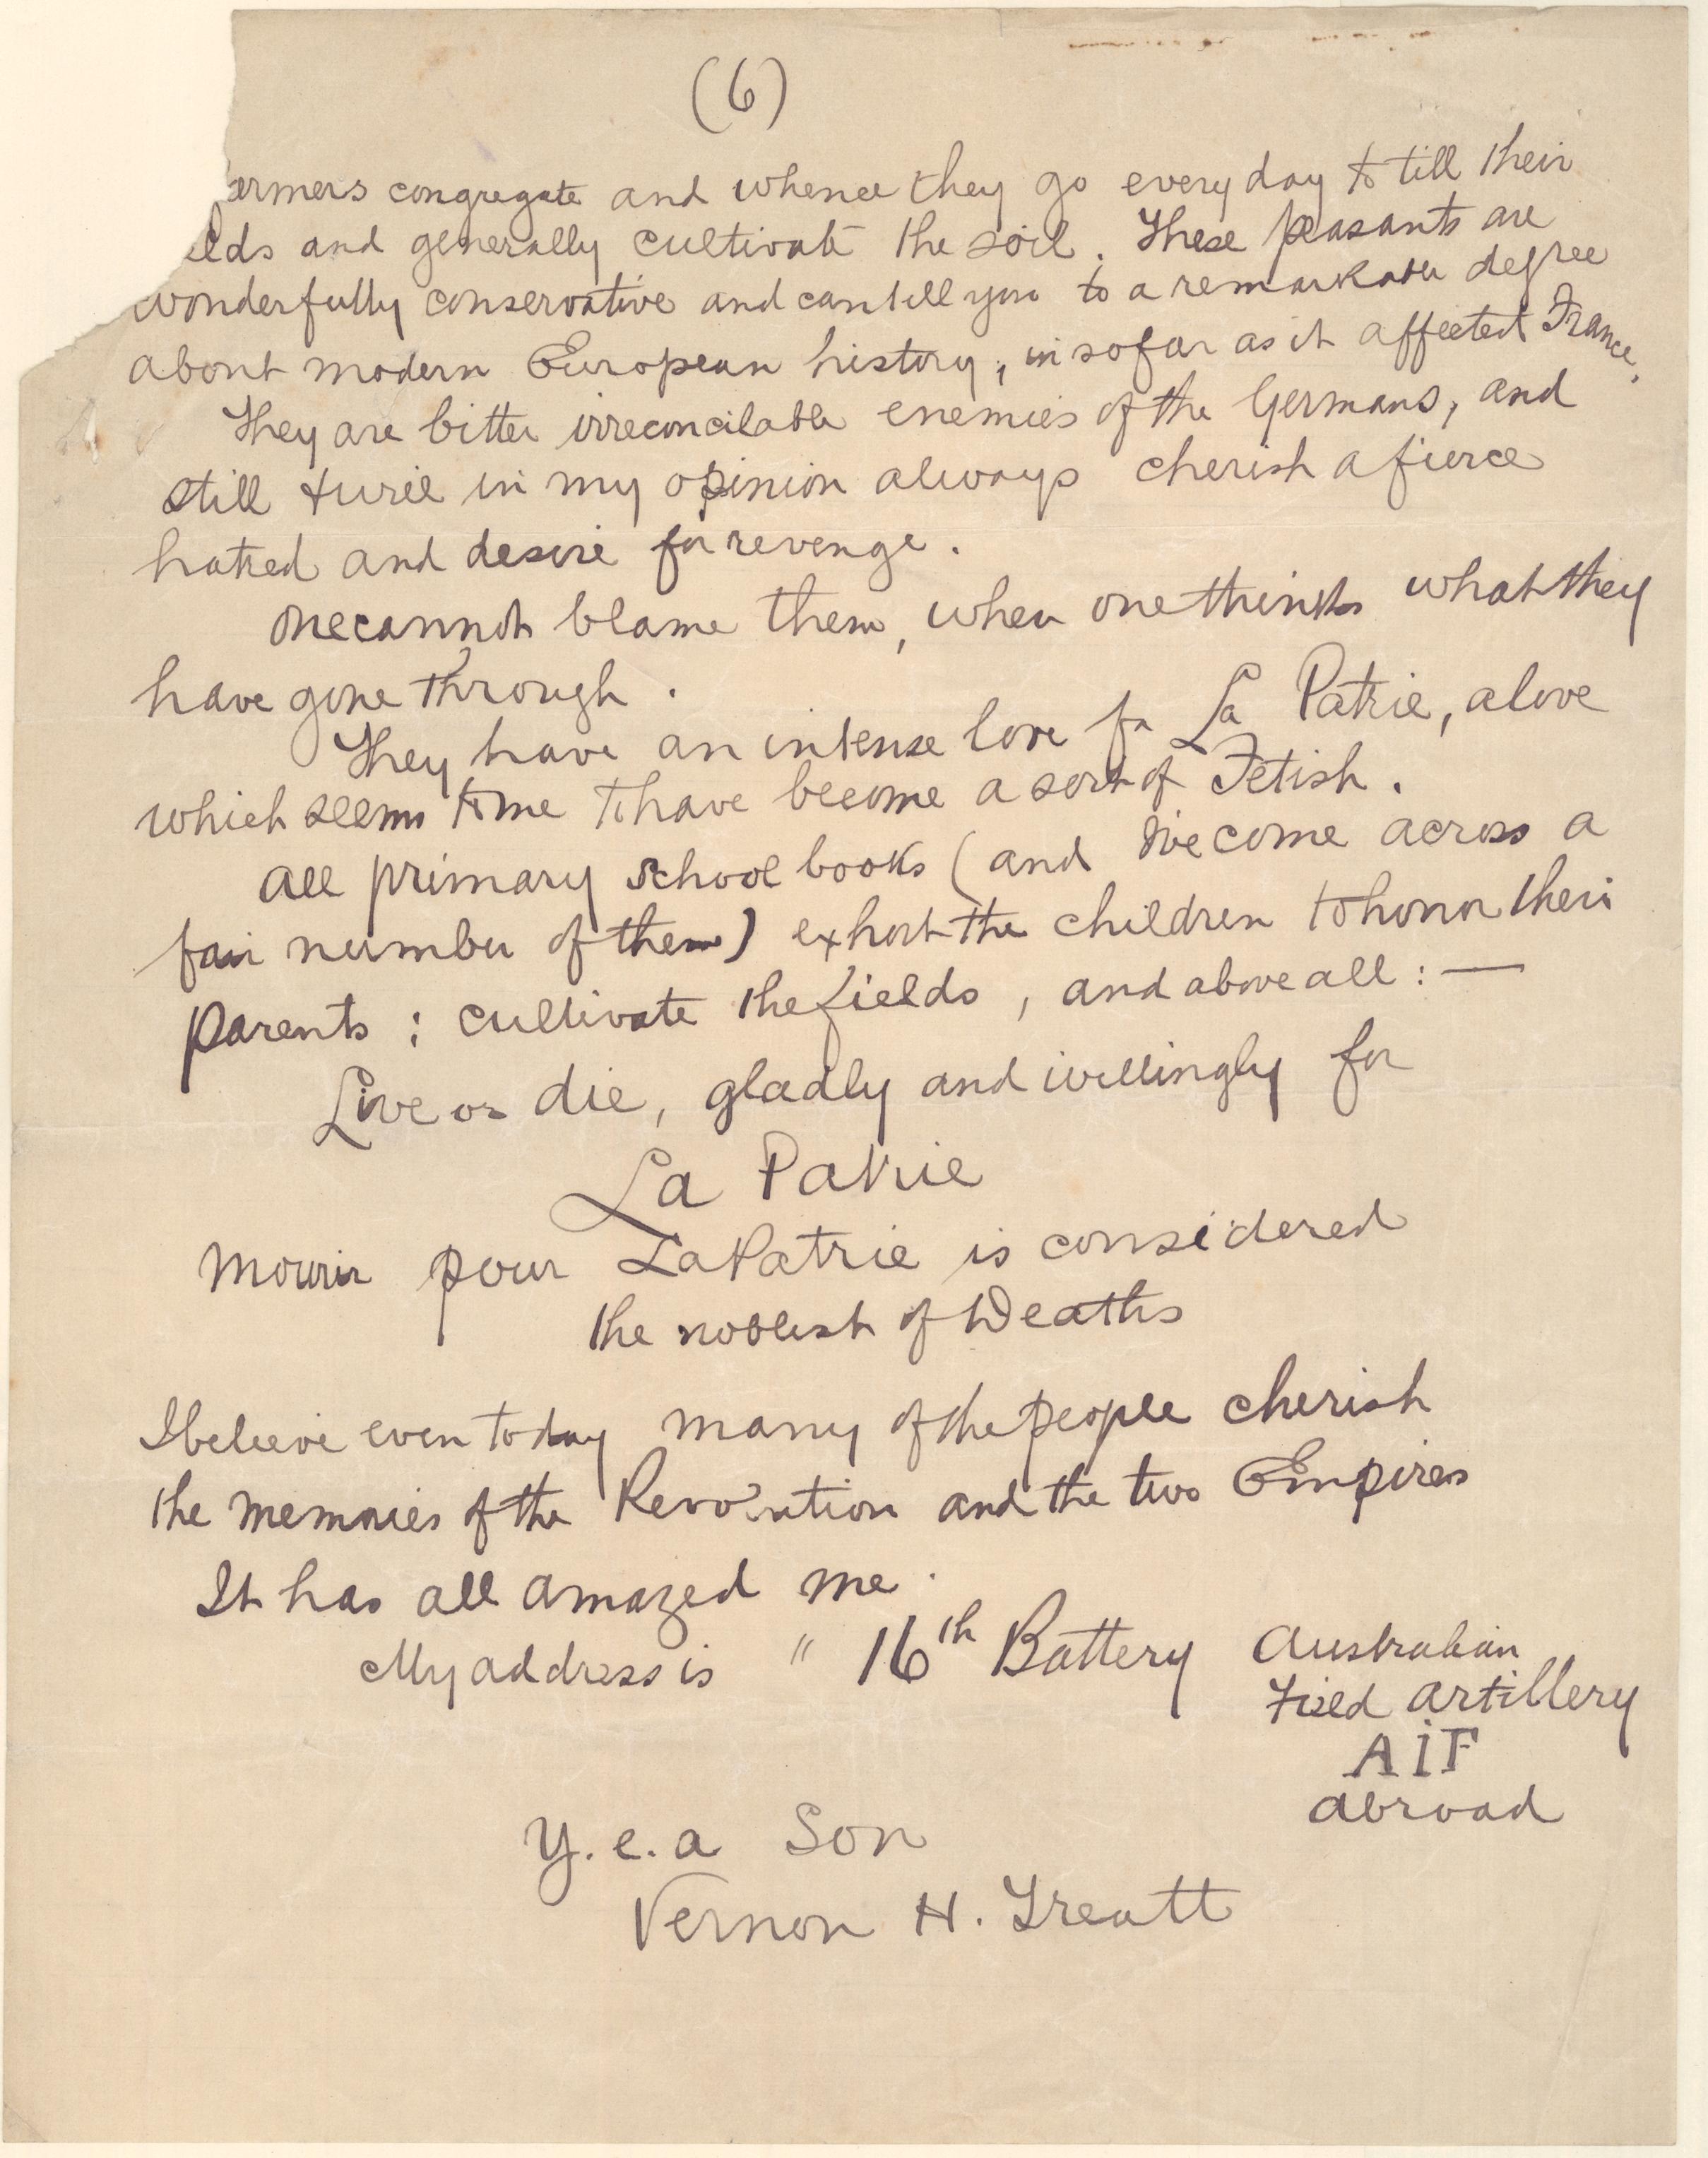 (6)
farmers congregate and whence they go every day to till their
elds and generally cultivate the soil. These peasants are
wonderfully conservative and can tell you to a remarkable degree
about modern European history, in so far as it affected France.
They are bitter irreconcilable enemies of the Germans, and
still & will in my opinion always cherish a fierce
hatred and desire for revenge.
One cannot blame them, when one thinks what they
have gone through.
They have an intense love for La Patrie, a love
which seems to me to have become a sort of Fetish.
All primary school books (and I've come across a
fair number of them) exhort the children to honor their
parents; cultivate the fields, and above all: —
Live or die, gladly and willingly for
La Patrie
Mourir pour La Patrie is considered
the noblest of Deaths
I believe even today many of the people cherish
the memories of the Revolution and the two Empires
It has all amazed me.
My address is " 16th Battery Australian
Field Artillery
AIF
abroad
Y. e. a Son
Vernon H. Treatt